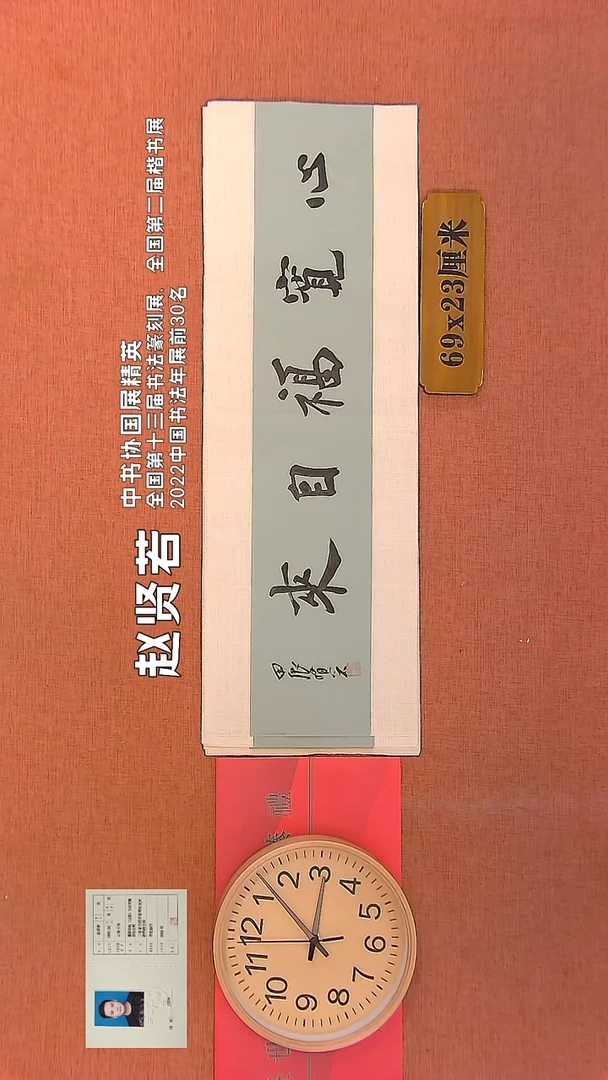 赵贤若
中书协国展精英
全国第十三届书法篆刻展、全国第二届楷书展
2022中国书法年展前30名
心寬福自來
69x23厘米
12
1
2
3
4
5
6
7
8
9
10
11